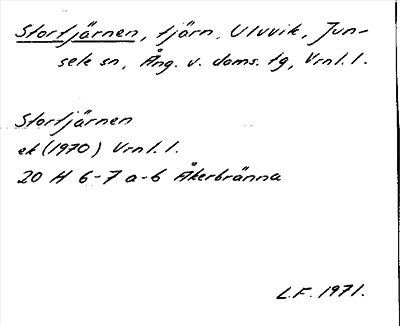 Stortjärnen, tjärn, Ulvvik, Jun-
sele sn, Ång. v. doms. tg, Vrnl. l.
Stortjärnen
ek (1970) Vrnl. l.
20 H 6-7 a-b Åkerbränna
L.F. 1971.